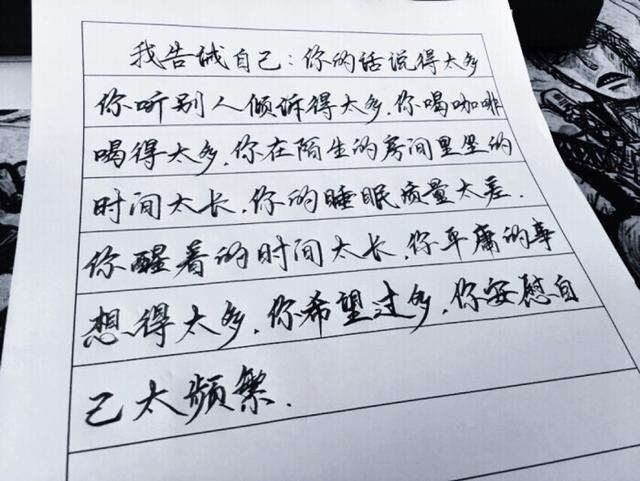 我告诫自己：你的话说得太多
你听别人倾诉得太多.你喝咖啡
喝得太多.你在陌生的房间里坐的
时间太长.你的睡眠质量太差.
你醒着的时间太长.你平庸的事
想得太多.你希望过多.你安慰自
己太频繁.